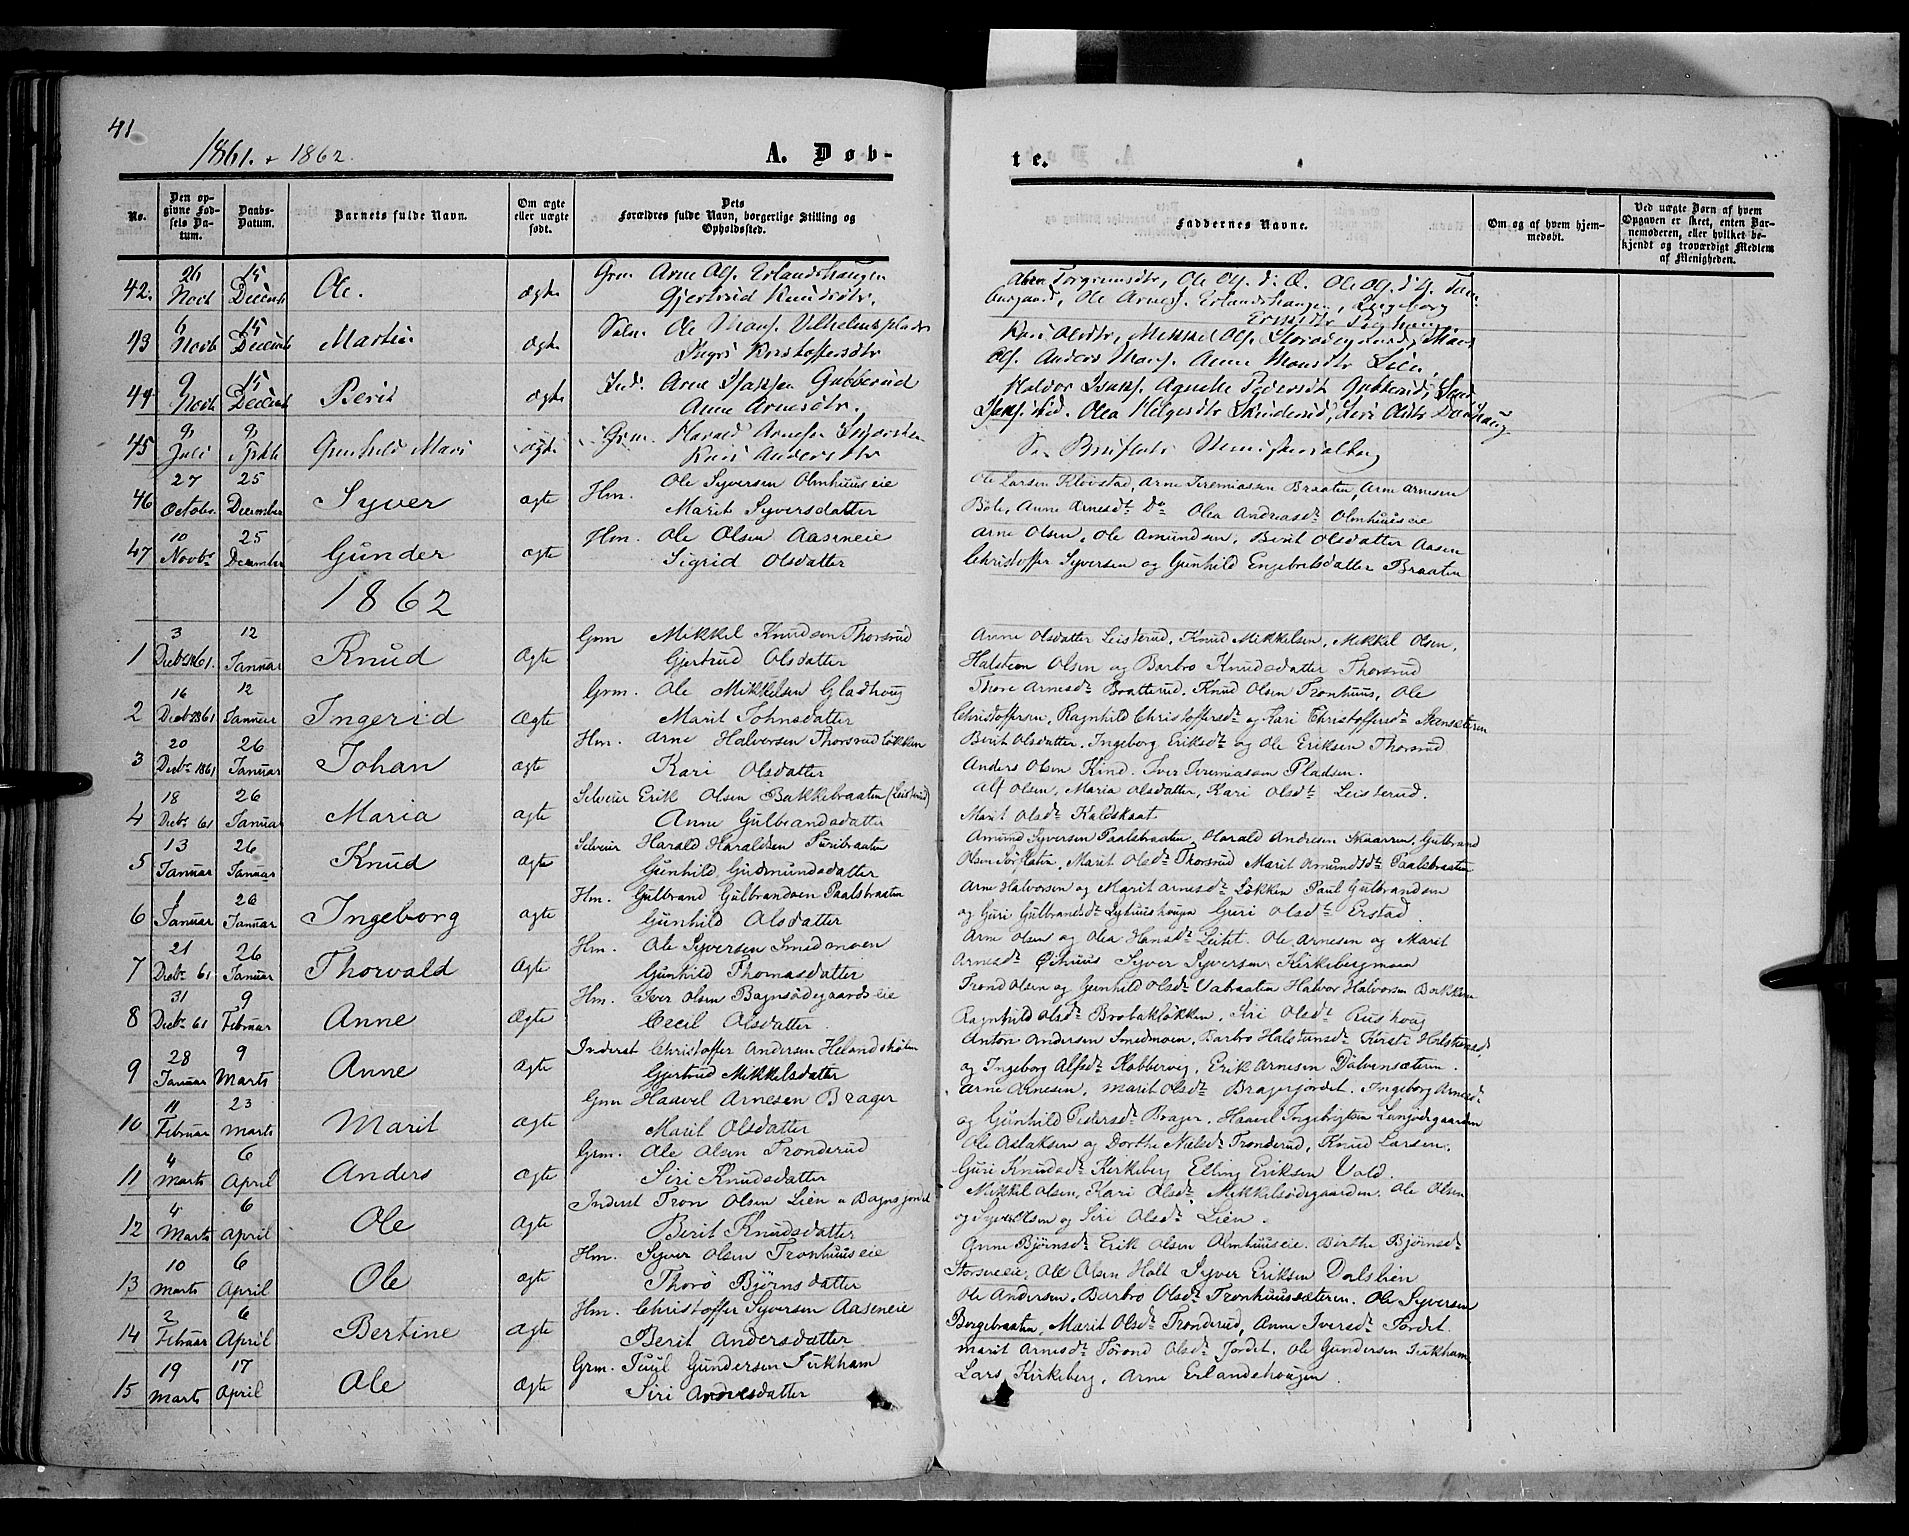 41
1861. + 1862.
A. Døb-
te.
No.
Den opgivne Fødsels Datum.
Daabs-Datum.
Barnets fulde Navn.
Om ægte eller uægte født.
Dets Forældres fulde Navn, borgerlige Stilling og Opholdssted.
Faddernes Navne.
Om og af hvem hjemmedøbt.
Ved uægte Børn af hvem Opgaven er skeet, enten Barnemoderen, eller hvilket bekjendt og troværdigt Medlem af Menigheden.
42. 26 Novb 15 Decemb Ole. ægte Grm Arne Ols. Erlandshaugen
Gjertrud Knudsdtr.
Torgrimsdtr, Ole Ols.
Ole Arnes. Erlandshaugen, Ingeborg
43 6 Novb 15 Decemb Martin ægte Ole Vilhelmsplads
Ingri Kristoffersdtr
Kari Olsdtr, Mikkel Ols.
Ols. Anders Anne Hansdtr Lien.
44 9 Novb 15 Decemb Berit ægte Ind. Arne Gubberud
Anne Arnesdtr.
Halvor Agnethe Pedersdt Gubberud,
Olea Helgesdtr
45 9 Juli Gunhild Mari ægte Grm. Harald Arnesen
Kari Andersdtr
46 27 October 25 December Syver ægte Hm. Ole Syversen Olmhuuseie
Marit Syversdatter
Ole Larsen Klovstad, Arne Jeremiassen Braaten, Arne Arnesen
Böle, Anne Arnesdt Do Olea Andreasdt Olmhuuseie
47 10 Novbr 25 December Gunder ægte Hm. Ole Olsen Aaseneie
Sigrid Olsdatter
Arne Olsen, Ole Amundsen, Berit Olsdatter Aasen
Christoffer Syversen og Gunhild Engebretsdatter Braaten
1862
1 3 Decbr 1861. 12 Januar Knud Ægte Grm Mikkel Knudsen Thorsrud
Gjertrud Olsdatter
Anne Olsdatter Leisterud, Knud Mikkelsen, Mikkel Olsen,
Halsteen Olsen og Barbro Knudsdatter Thorsrud
2 16 Decbr 1861 12 Januar Ingerid Ægte Grm. Ole Mikkelsen Gladhoug
Marit Johnsdatter
Thore Arnesdt Bratterud, Knud Olsen Tronhuus, Ole
Christoffersen, Ragnhild Christoffersdt og Kari Christoffersdt
3 20 Decbr 1861 26 Januar Johan ægte Hm. Arne Halvorsen Thorsrudløkken
Kari Olsdatter
Berit Olsdatter, Ingeborg Eriksdt og Ole Eriksen Thorsrud
Anders Olsen Kind. Iver Jeremiasen Pladsen.
4 18 Decbr 61 26 Januar Maria ægte Selveier Erik Olsen Bakkebraaten (Leisterud)
Anne Gulbrandsdatter
Alf Olsen, Maria Olsdatter, Kari Olsdt Leisterud.
Marit Olsdt Kaldskaat
5 13 Januar 26 Januar Knud ægte Selveier Harald Haraldsen Puribraaten
Gunhild Gudmundsdatter
Amund Syversen Paalsbraaten, Harald Andresen Skaarrud, Gulbrand
Olsen Sørflaten, Marit Olsdt Thorsrud Marit Amundsdt Paalsbraaten
6 Januar 26 Januar Ingeborg ægte Hm. Gulbrand Gulbrandsen Paalsbraaten
Gunhild Olsdatter
Arne Halvorsen og Marit Arnesdt Løkken Paul Gulbrandsen
og Guri Gulbrandsdt Guri Olsdt Erstad.
7 21 Decbr 61 26 Januar Thorvald Ægte Hm. Ole Syversen Smedmoen
Gunhild Thomasdatter
Arne Olsen og Olea Hansdt Leitet. Ole Arnesen og Marit
Arnesdt Øihuus Syver Syversen Kirkebergmoen
8 31 Decbr 61 9 Februar Anne Ægte Hm. Iver Olsen Bagnsødegaardseie
Cecil Olsdatter.
Trond Olsen og Gunhild Olsdt Vabraaten Halvor Halvorsen Bakken
Ragnhild Olsdt Brobakløkken, Siri Olsdt Rushoug
9 28 Januar 9 Marts Anne Ægte Inderst Christoffer Andersen
Gjertrud Mikkelsdatter
Anton Andersen Smedmoen, Barbro Halstensdt Kirsti Halstensd.
og Ingeborg Alfsdt Robbervig, Erik Arnesen Dølvensæteren.
10 11 Februar 23 Marts Marit ægte Grm Haavel Arnesen Brager
Marit Olsdatter
Arne Arnesen, Marit Olsdt Bragerjordet. Ingeborg Arnesdt
og Gunhild Pedersdt Brager, Haavel Ingebrigtsen
11 4 Marts 6 April Anders ægte Grm. Ole Olsen Tronderud
Siri Knudsdatter
Ole Aslaksen og Dorthe Nielsdt Tronderud, Knud Larsen.
Guri Knudsdt Kirkeberg Elling Eriksen Vold.
12 4 Marts 6 April Ole Ægte Inderst Tron Olsen Lien u Bagnsjordet
Berit Knudsdatter
Mikkel Olsen, Kari Olsdt Mikkelsødegaarden. Ole Olsen
og Syver Olsen og Siri Olsdt Lien.
13 10 Marts 6 April Ole ægte Hm. Syver Olsen Tronhuuseie
Thorø Bjørnsdatter
Anne Bjørnsdt Erik Olsen Olmhuuseie. Birthe Bjørnsdt
Storsveeie, Ole Olsen Holt Syver Eriksen Dalslien
14 2 Februar 6 April Bertine Ægte Hm. Christoffer Syversen Aaseneie
Berit Andersdatter
Ole Andersen, Barbro Olsdt Tronhuussæteren. Ole Syversen
Borgebraaten, Marit Olsdt Tronderud, Anne Iversdt Jordet.
15 19 Marts 17 April Ole Ægte Grm. Juul Gundersen Sukham
Siri Andresdatter
Marit Arnesdt Torond Olsdt Jordet. Ole Gundersen Sukham
Lars Kirkeberg, Arne Erlandehougen.